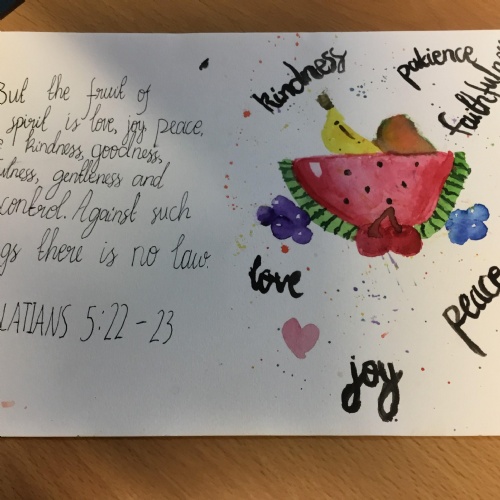 But the fruit of
spirit is love, joy, peace,
kindness, goodness,
gentleness and
control. Against such
there is no law.
5:22-23
kindness
patience
love
peace
joy